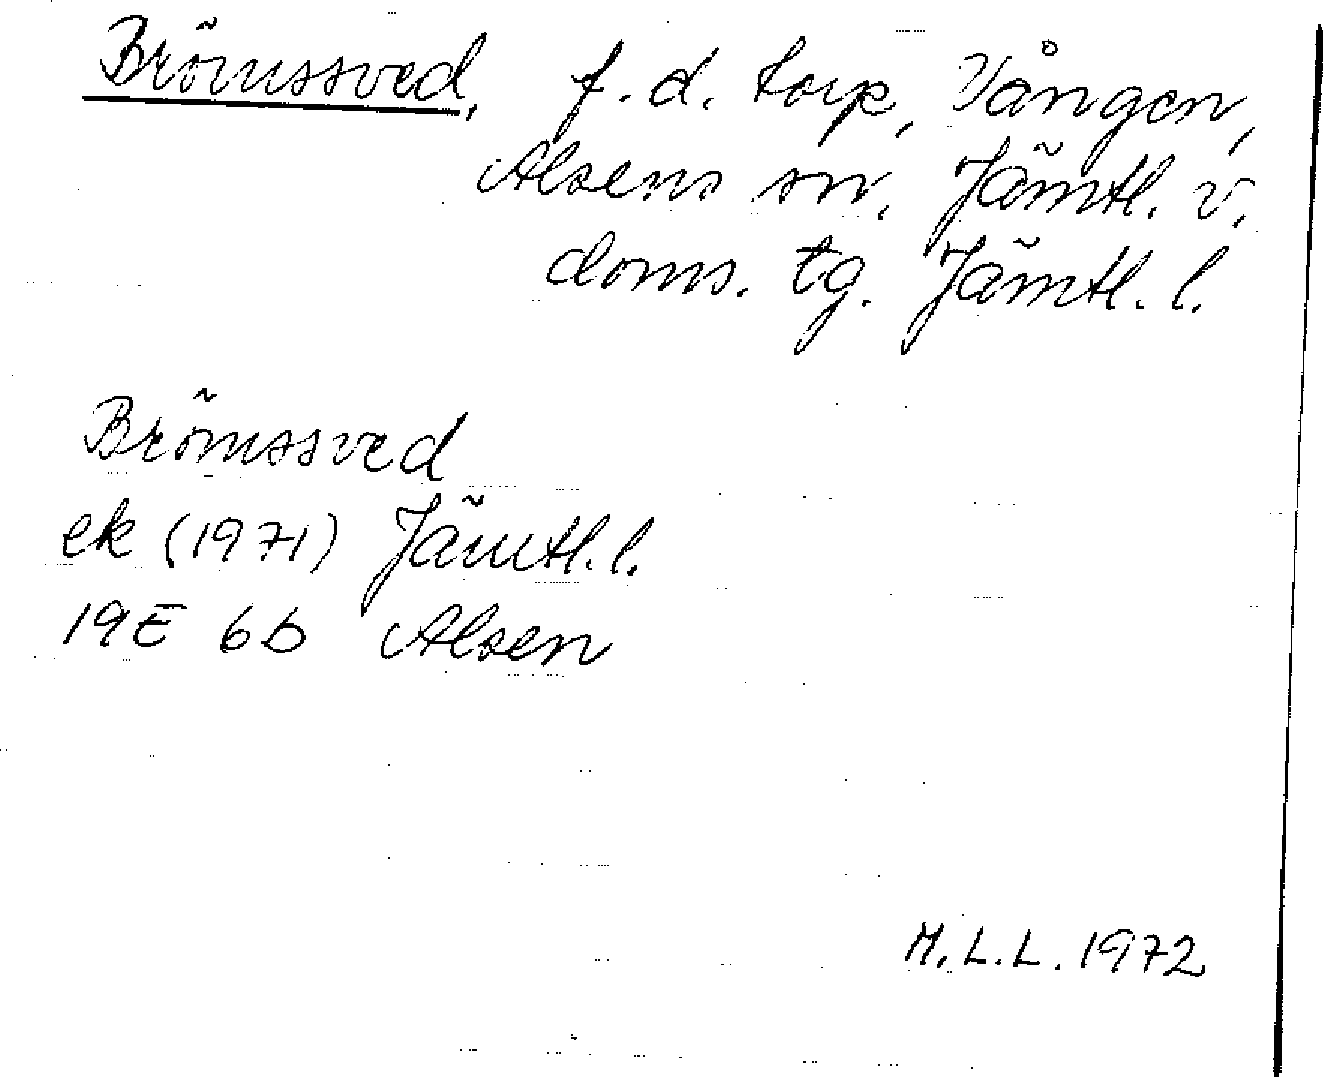 Brömssved, f.d. torp, Vången,
Alsens sn, Jämtl. v.
doms. tg. Jämtl. l.
Brömssved
ek (1971) Jämtl. l.
19E 6b Alsen
M.L.L. 1972